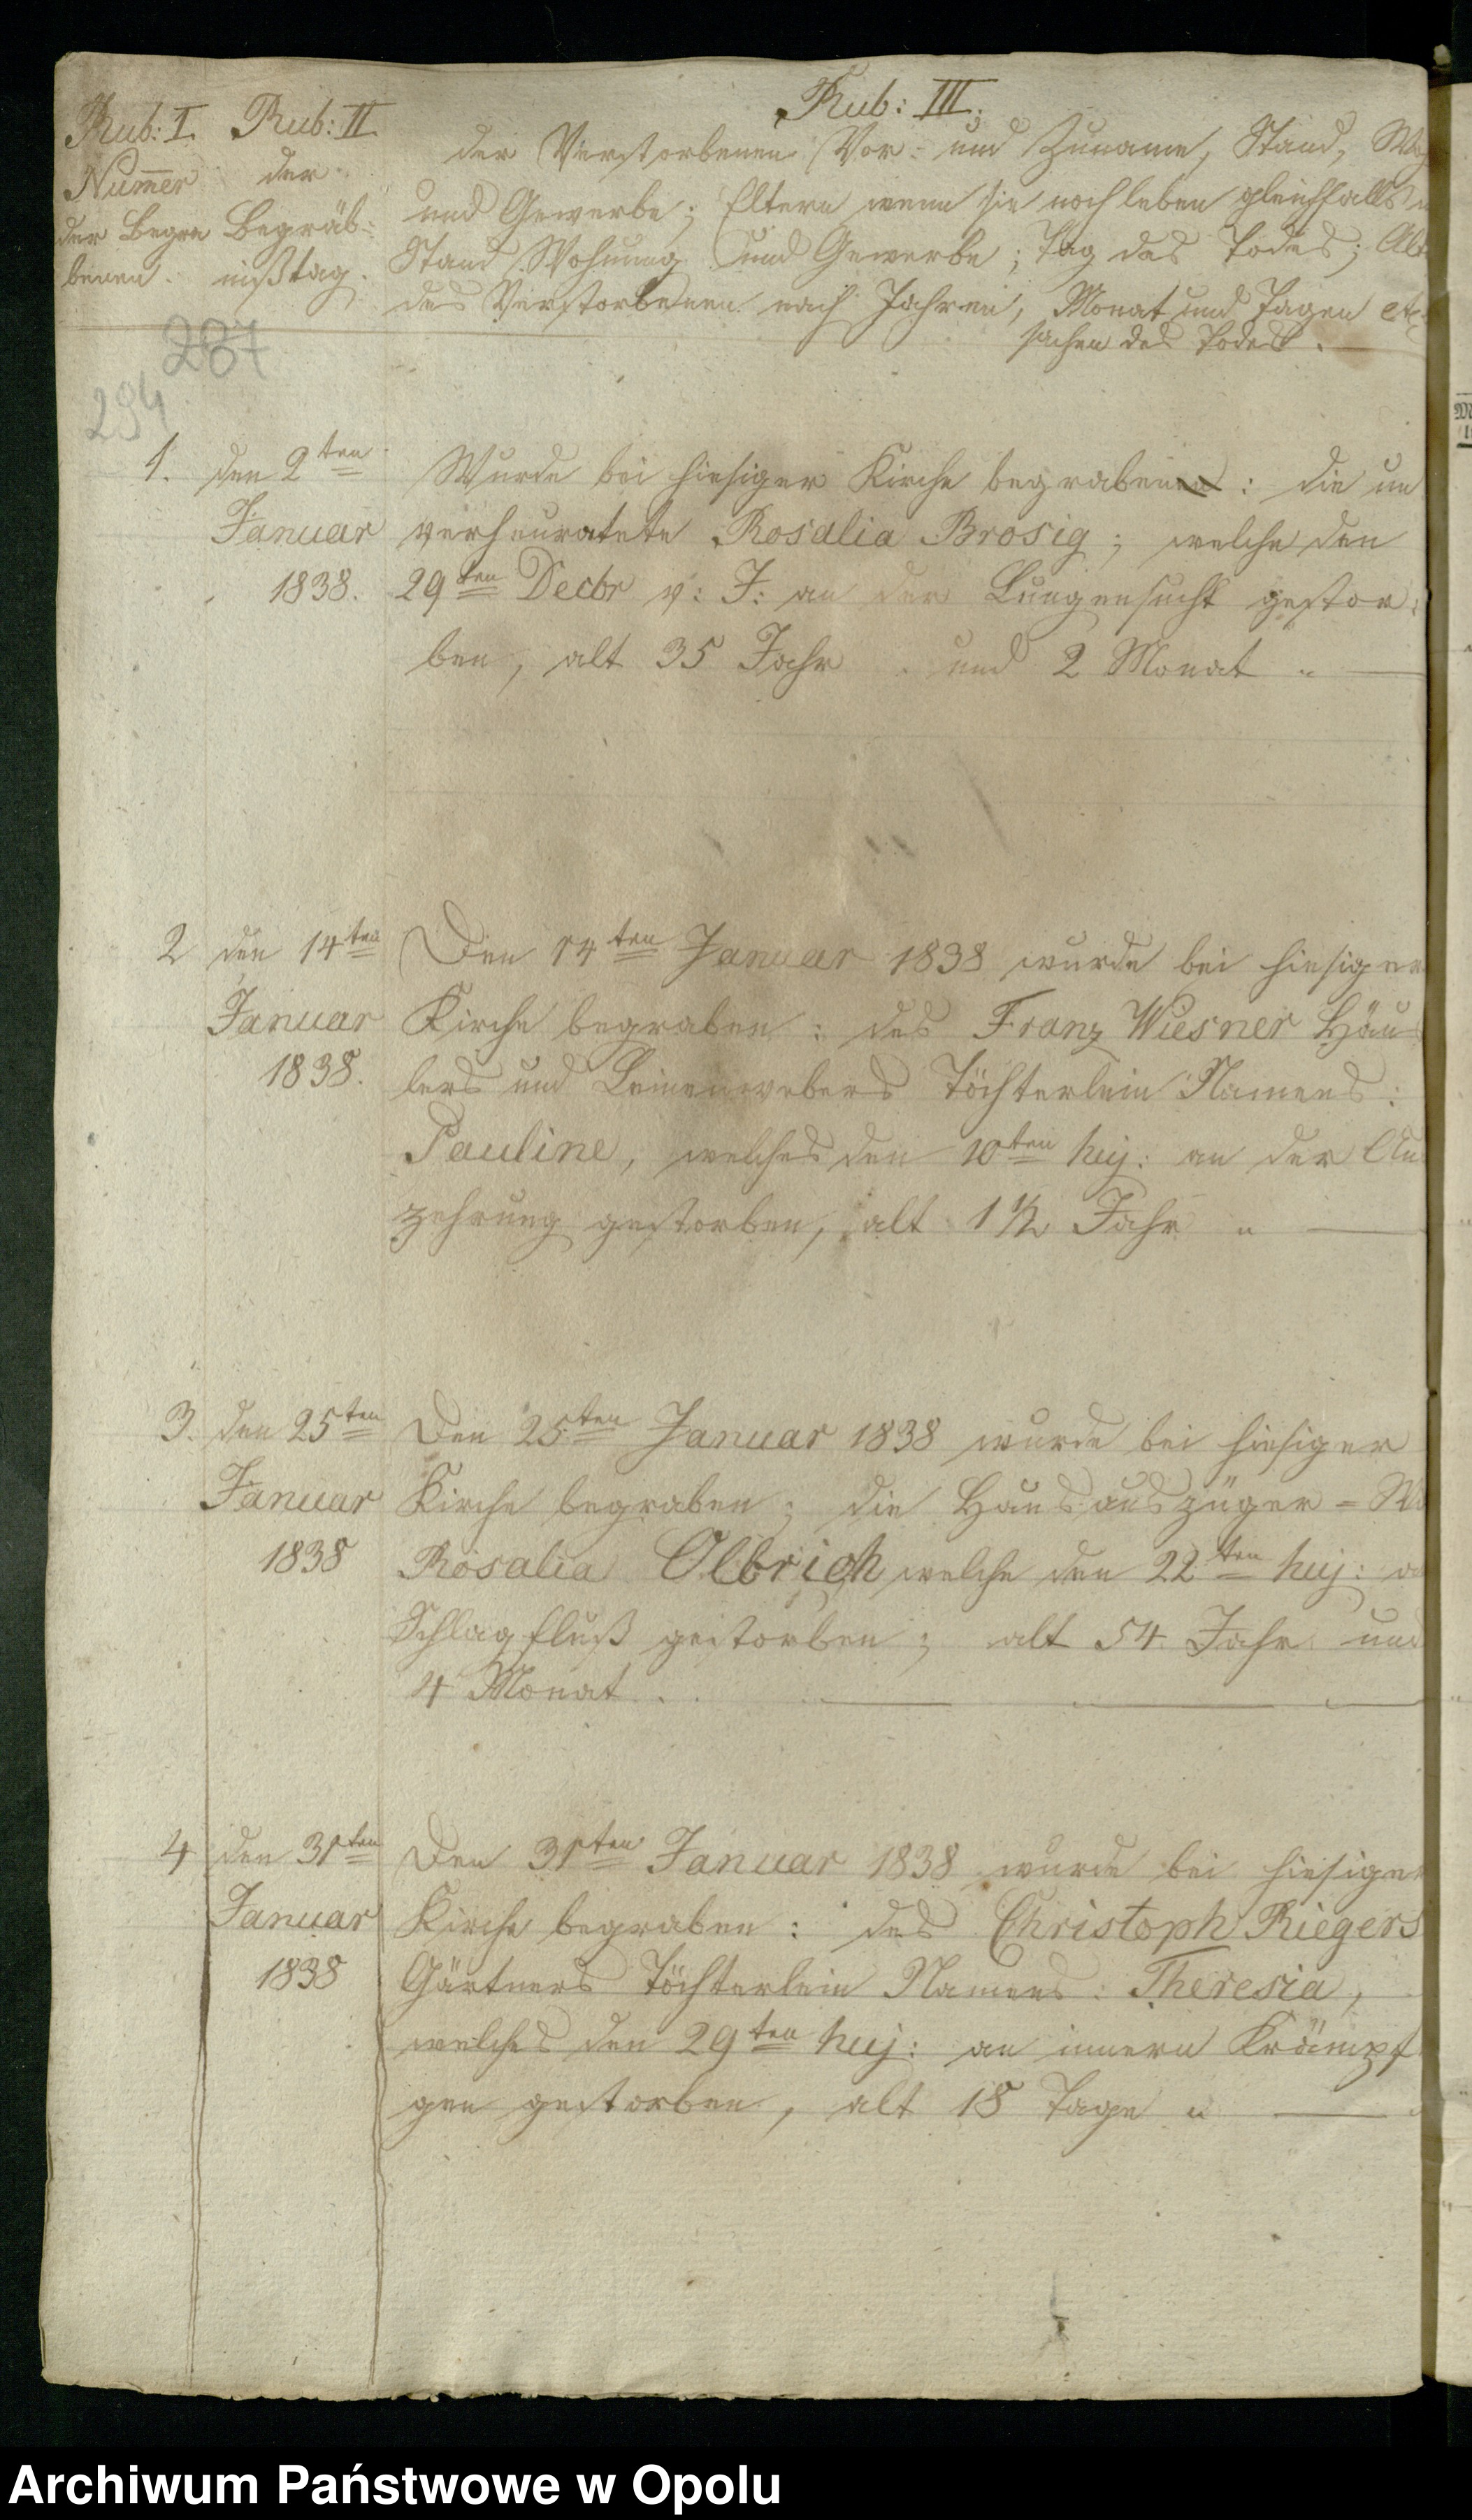 Rub: I. Rub: II. Rub: III.
Num̄er der der Verstorbenen Vor- und Zuname, Stand,
der Begra Begräb- und Gewerbe; Eltern wenn sie noch leben gleichfalls
benen. nißtag. Stand Wohnung und Gewerbe; Tag des Todes;
des Verstorbenen nach Jahren, Monat und Tagen etc
sachen des Todes.
287
294
1. den 2ten Wurde bei hiesiger Kirche begraben: die un
Januar verheuratete Rosalia Brosig; welche den
1838. 29ten Decbr v: J: an der Lungensucht gestor:
ben, alt 35 Jahr und 2 Monat "
2 den 14ten Den 14ten Januar 1838 wurde bei hiesiger
Januar Kirche begraben: des Franz Wiesner Häus
1838. lers und Leinenwebers Töchterlein Namens:
Pauline, welches den 10ten huj: an der Au
zehrung gestorben, alt 1 1/2 Jahr "
3. den 25ten Den 25ten Januar 1838 wurde bei hiesiger
Januar Kirche begraben; die Hausauszüger =
1838 Rosalia Olbrich welche den 22ten huj:
Schlagfluß gestorben; alt 54 Jahr und
4 Monat.
4 den 31ten Den 31ten Januar 1838 wurde bei hiesiger
Januar Kirche begraben: des Christoph Riegers
1838 Gärtners Töchterlein Namens: Theresia,
welches den 29ten huj: an innern Krämpf
gen gestorben, alt 18 Tage "
Archiwum Państwowe w Opolu